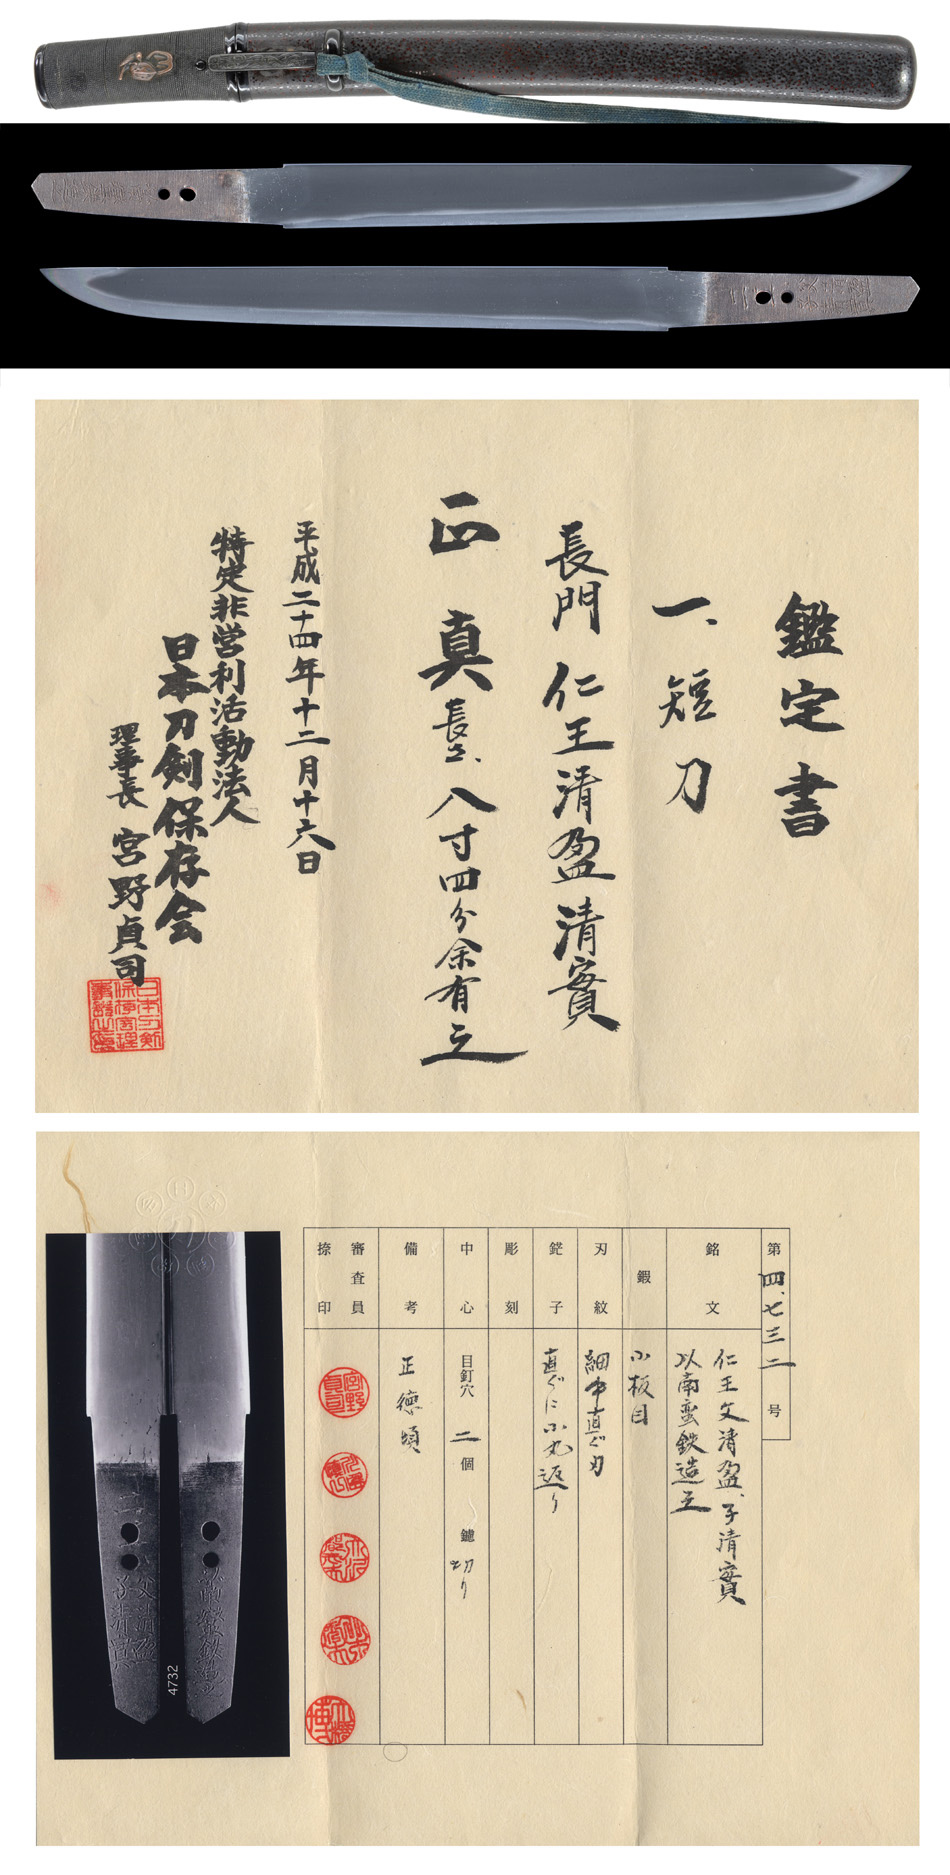 鑑定書
一、短刀
長門 仁王清盈 清實
正真 長さ、八寸四分余有之
平成二十四年十二月十六日
特定非営利活動法人
日本刀剣保存会
理事長 宮野貞司
第四、七三二号
銘文
仁王文清盈、子清實
以南蛮鉄造之
鍛
小板目
刃紋
細中直ぐ刃
鋩子
直ぐに小丸返り
彫刻
中心
目釘穴 二個 鑢 切り
備考
正徳頃
審査員
捺印
宮野貞司
4732